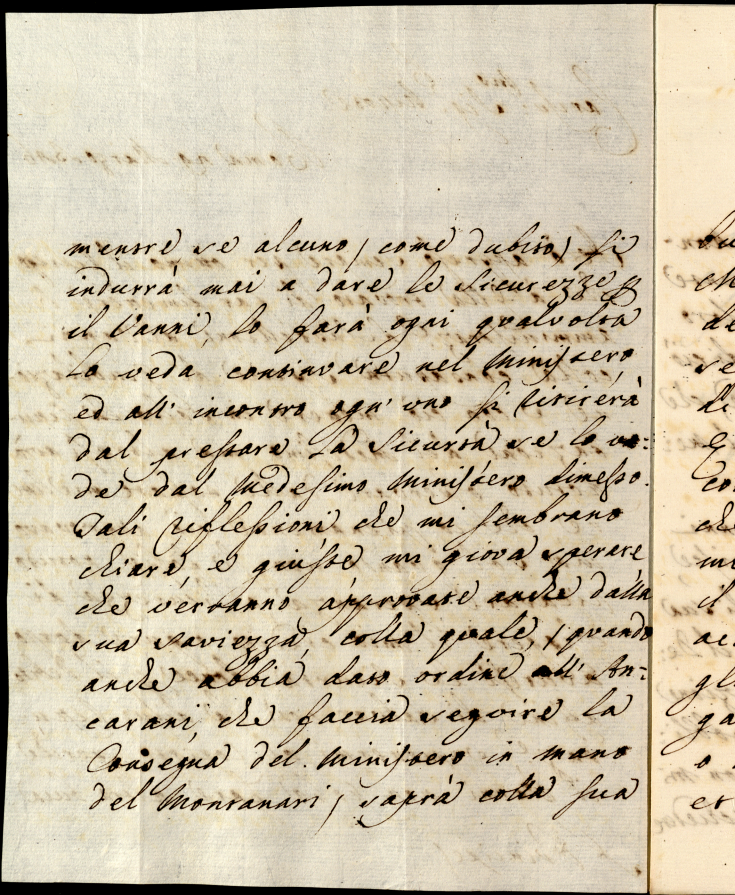 mentre, se alcuno / come dubito / si
indurrà mai a dare le Sicurezze p
il Vanni, lo farà ogni qualvolta
lo veda continuare nel Ministero
ed all' incontro ogn' uno si ritirerà
dal prestare la Sicurtà se lo ve:
de dal Medesimo Ministero dimesso.
Tali riflessioni che mi sembrano
chiare e giuste mi giova sperare
che verranno approvate anche dalla
sua saviezza, colla quale, / quando
anche abbia dato ordine all' An-
carani, che faccia seguire la
Consegna del Ministero in mano
del Montanari / saprà colla sua